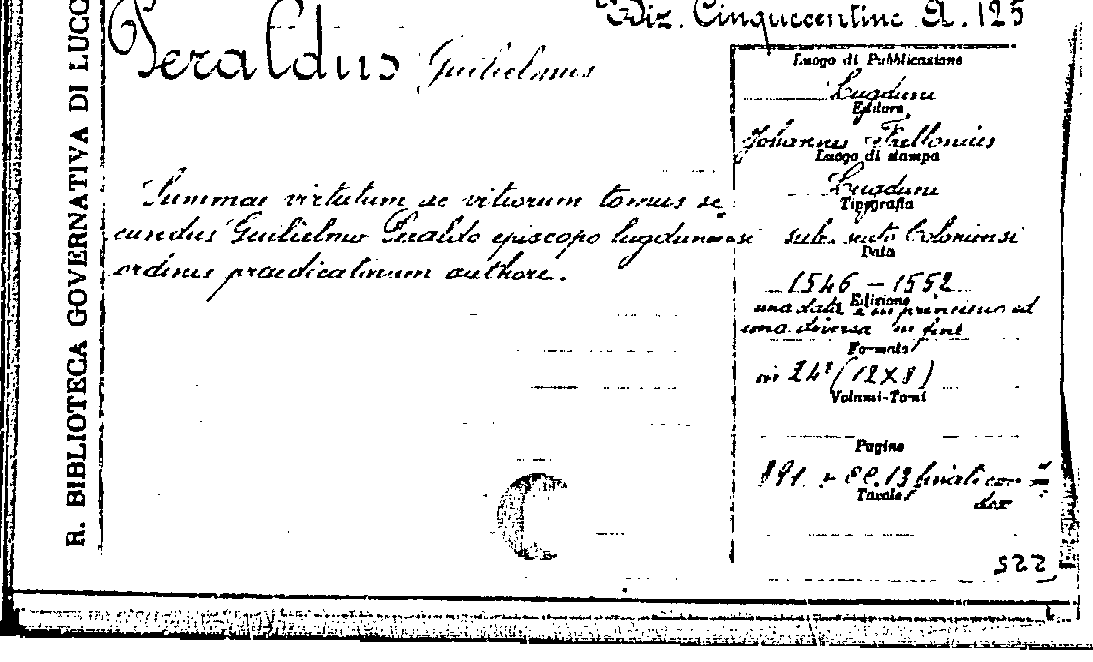 Diz. Cinquecentine A. 125
R. BIBLIOTECA GOVERNATIVA DI LUCC
Peraldus Guilielmus
Summae virtutum ac vitiorum tomus se-
cundus Guilielmo Peraldo episcopo lugdunensi
ordinis praedicatorum authore.
Luogo di Pubblicazione
Lugduni
Editore
Johannes Frellonius
Luogo di stampa
Lugduni
Tipografia
sub scuto Coloniensi
Data
1546 - 1552
Edizione
una data è in principio ed
una diversa in fine
Formato
in 24° (12X8)
Volumi-Tomi
Pagine
891 + cc. 13 finali con in-
Tavole
dex
522